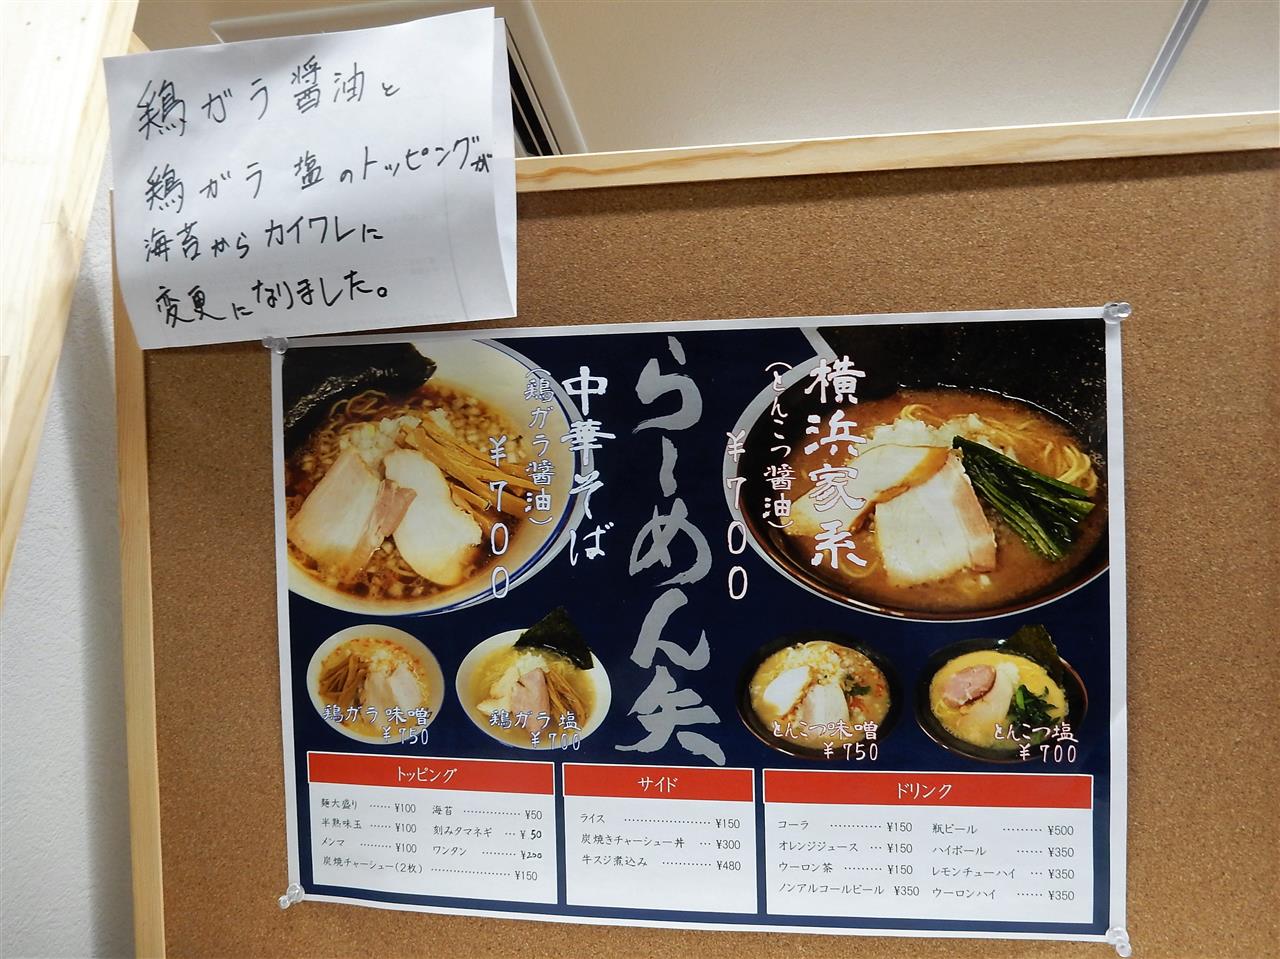 鶏ガラ醤油と
鶏ガラ塩のトッピングが
海苔からカイワレに
変更になりました。
らーめん矢
横浜家系
(とんこつ醤油)
¥700
中華そば
(鶏ガラ醤油)
¥700
鶏ガラ味噌
¥750
鶏ガラ塩
¥700
とんこつ味噌
¥750
とんこつ塩
¥700
トッピング
麺大盛り …… ¥100
半熟味玉 …… ¥100
メンマ …… ¥100
炭焼チャーシュー(2枚) …… ¥150
海苔 …… ¥50
刻みタマネギ … ¥50
ワンタン …… ¥200
サイド
ライス …… ¥150
炭焼きチャーシュー丼 … ¥300
牛スジ煮込み …… ¥480
ドリンク
コーラ …… ¥150
オレンジジュース … ¥150
ウーロン茶 …… ¥150
ノンアルコールビール ¥350
瓶ビール …… ¥500
ハイボール …… ¥350
レモンチューハイ … ¥350
ウーロンハイ …… ¥350